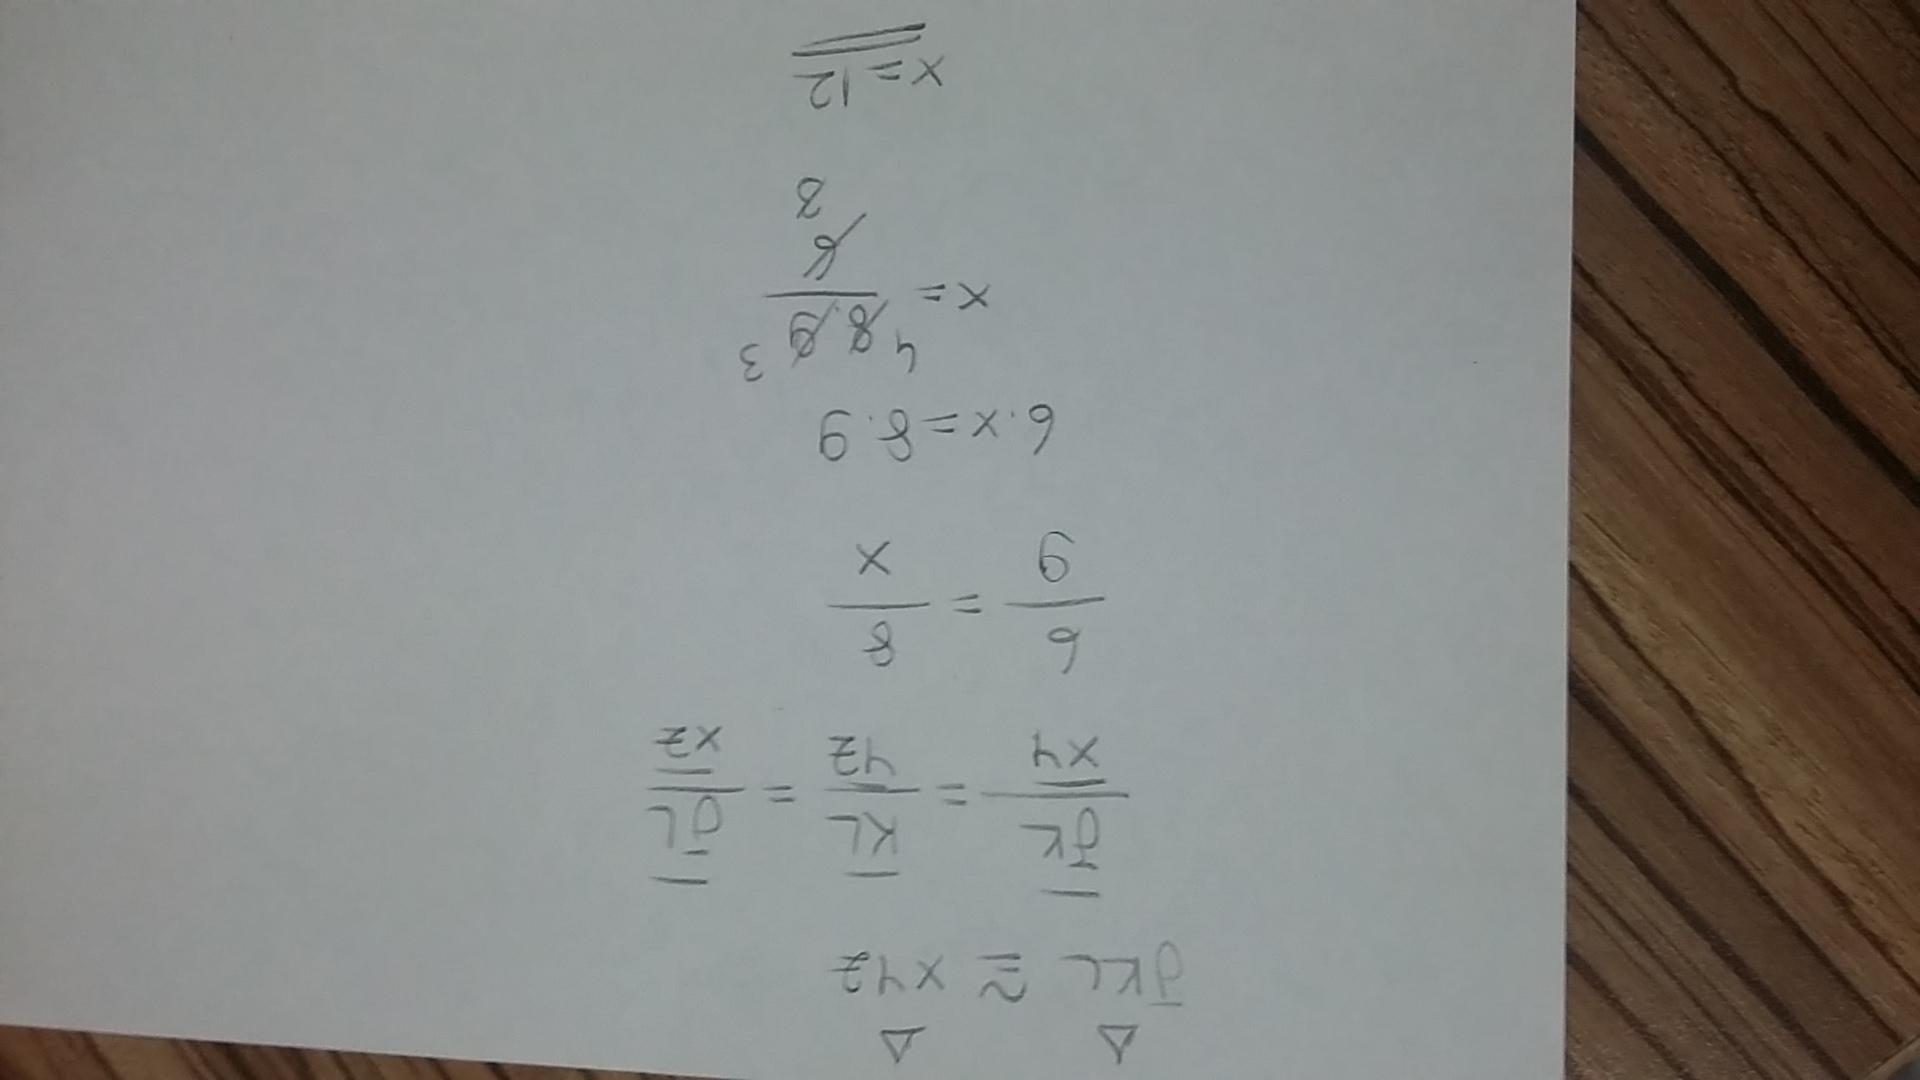 △ △
JKL ≅ XYZ
JK/XY = KL/YZ = JL/XZ
6/9 = 8/x
6.x = 8.9
x = 4 8.9 3 / 6 2
x = 12